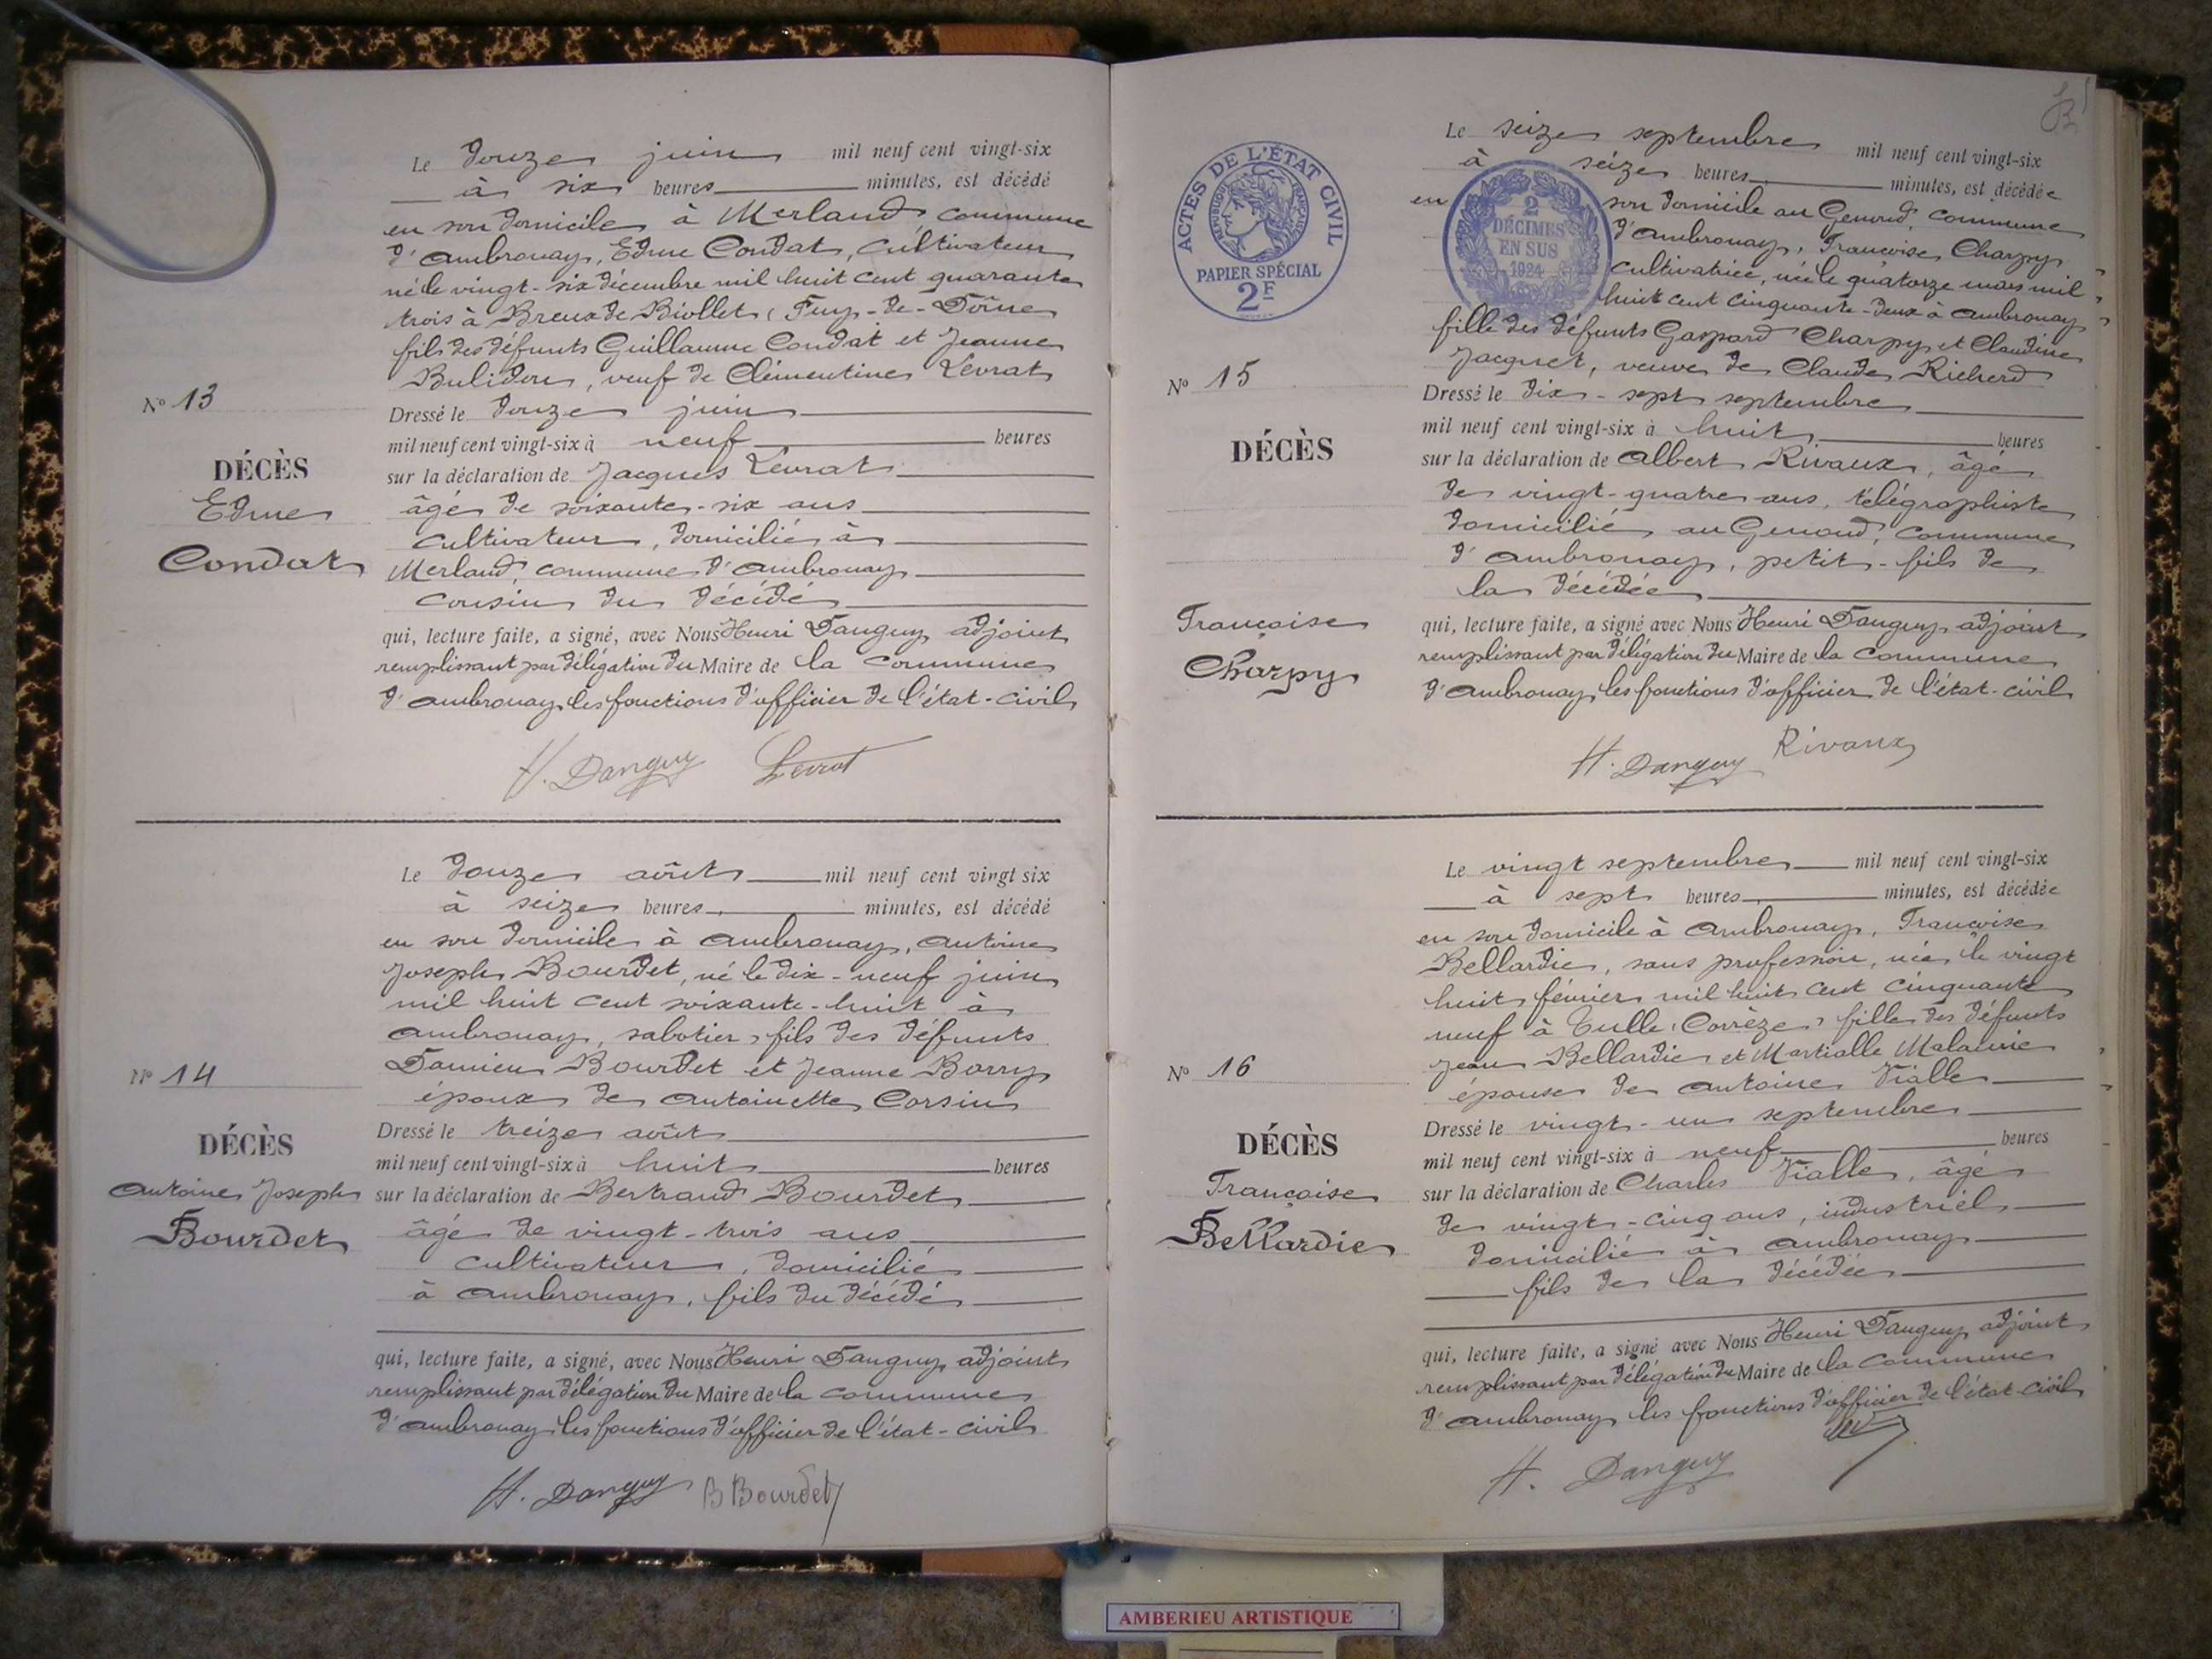 Le douze juin mil neuf cent vingt-six
à six heures minutes, est décédé
en son domicile à Merland commune
d'Ambronay, Edme Condat, cultivateur
né le vingt-six décembre mil huit cent quarante
trois à Breux de Biollet (Puy-de-Dôme
fils des défunts Guillaume Condat et Jeanne
Bulidon, veuf de Clémentine Levrat
Nº 13
DÉCÈS
Edme
Condat
Dressé le douze juin
mil neuf cent vingt-six à neuf heures
sur la déclaration de Jacques Levrat
âgé de soixante-six ans
cultivateur, domicilié à
Merland, commune d'Ambronay
cousin du décédé
qui, lecture faite, a signé, avec Nous Henri Danguy adjoint
remplissant par délégation du Maire de la commune
d'Ambronay les fonctions d'officier de l'état-civil
H. Danguy Levrat
Le douze août mil neuf cent vingt six
à seize heures minutes, est décédé
en son domicile à Ambronay, Antoine
Joseph Bourdet, né le dix-neuf juin
mil huit cent soixante-huit à
Ambronay, sabotier, fils des défunts
Damien Bourdet et Jeanne Borry
époux de Antoinette Corsin
Nº 14
DÉCÈS
Antoine Joseph
Bourdet
Dressé le treize août
mil neuf cent vingt-six à huit heures
sur la déclaration de Bertrand Bourdet
âgé de vingt-trois ans
cultivateur, domicilié
à Ambronay, fils du décédé
qui, lecture faite, a signé, avec Nous Henri Danguy adjoint
remplissant par délégation du Maire de la commune
d'Ambronay les fonctions d'officier de l'état-civil
H. Danguy B Bourdet
ACTES DE L'ÉTAT CIVIL
RÉPUBLIQUE FRANÇAISE
PAPIER SPÉCIAL
2F
2
DÉCIMES
EN SUS
1924
Le seize septembre mil neuf cent vingt-six
à seize heures minutes, est décédée
en son domicile au Genoud, commune
d'Ambronay, Françoise Charpy
cultivatrice, née le quatorze mars mil
huit cent cinquante-deux à Ambronay
fille des défunts Gaspard Charpy et Claudine
Jacquet, veuve de Claude Richerd
Nº 15
DÉCÈS
Françoise
Charpy
Dressé le dix-sept septembre
mil neuf cent vingt-six à huit heures
sur la déclaration de Albert Rivaux, âgé
de vingt-quatre ans, télégraphiste
domicilié au Genoud, commune
d'Ambronay, petit-fils de
la décédée
qui, lecture faite, a signé avec Nous Henri Danguy adjoint
remplissant par délégation du Maire de la commune
d'Ambronay les fonctions d'officier de l'état-civil
H. Danguy Rivaux
Le vingt septembre mil neuf cent vingt-six
à sept heures minutes, est décédée
en son domicile à Ambronay, Françoise
Bellardie, sans profession, née le vingt
huit février mil huit cent cinquante
neuf à Tulle (Corrèze) fille des défunts
Jean Bellardie et Martialle Malaurie
épouse de Antoine Vialle
Nº 16
DÉCÈS
Françoise
Bellardie
Dressé le vingt-un septembre
mil neuf cent vingt-six à neuf heures
sur la déclaration de Charles Vialle, âgé
de vingt-cinq ans, industriel
domicilié à Ambronay
fils de la décédée
qui, lecture faite, a signé avec Nous Henri Danguy adjoint
remplissant par délégation du Maire de la commune
d'Ambronay les fonctions d'officier de l'état-civil
H. Danguy
AMBERIEU ARTISTIQUE